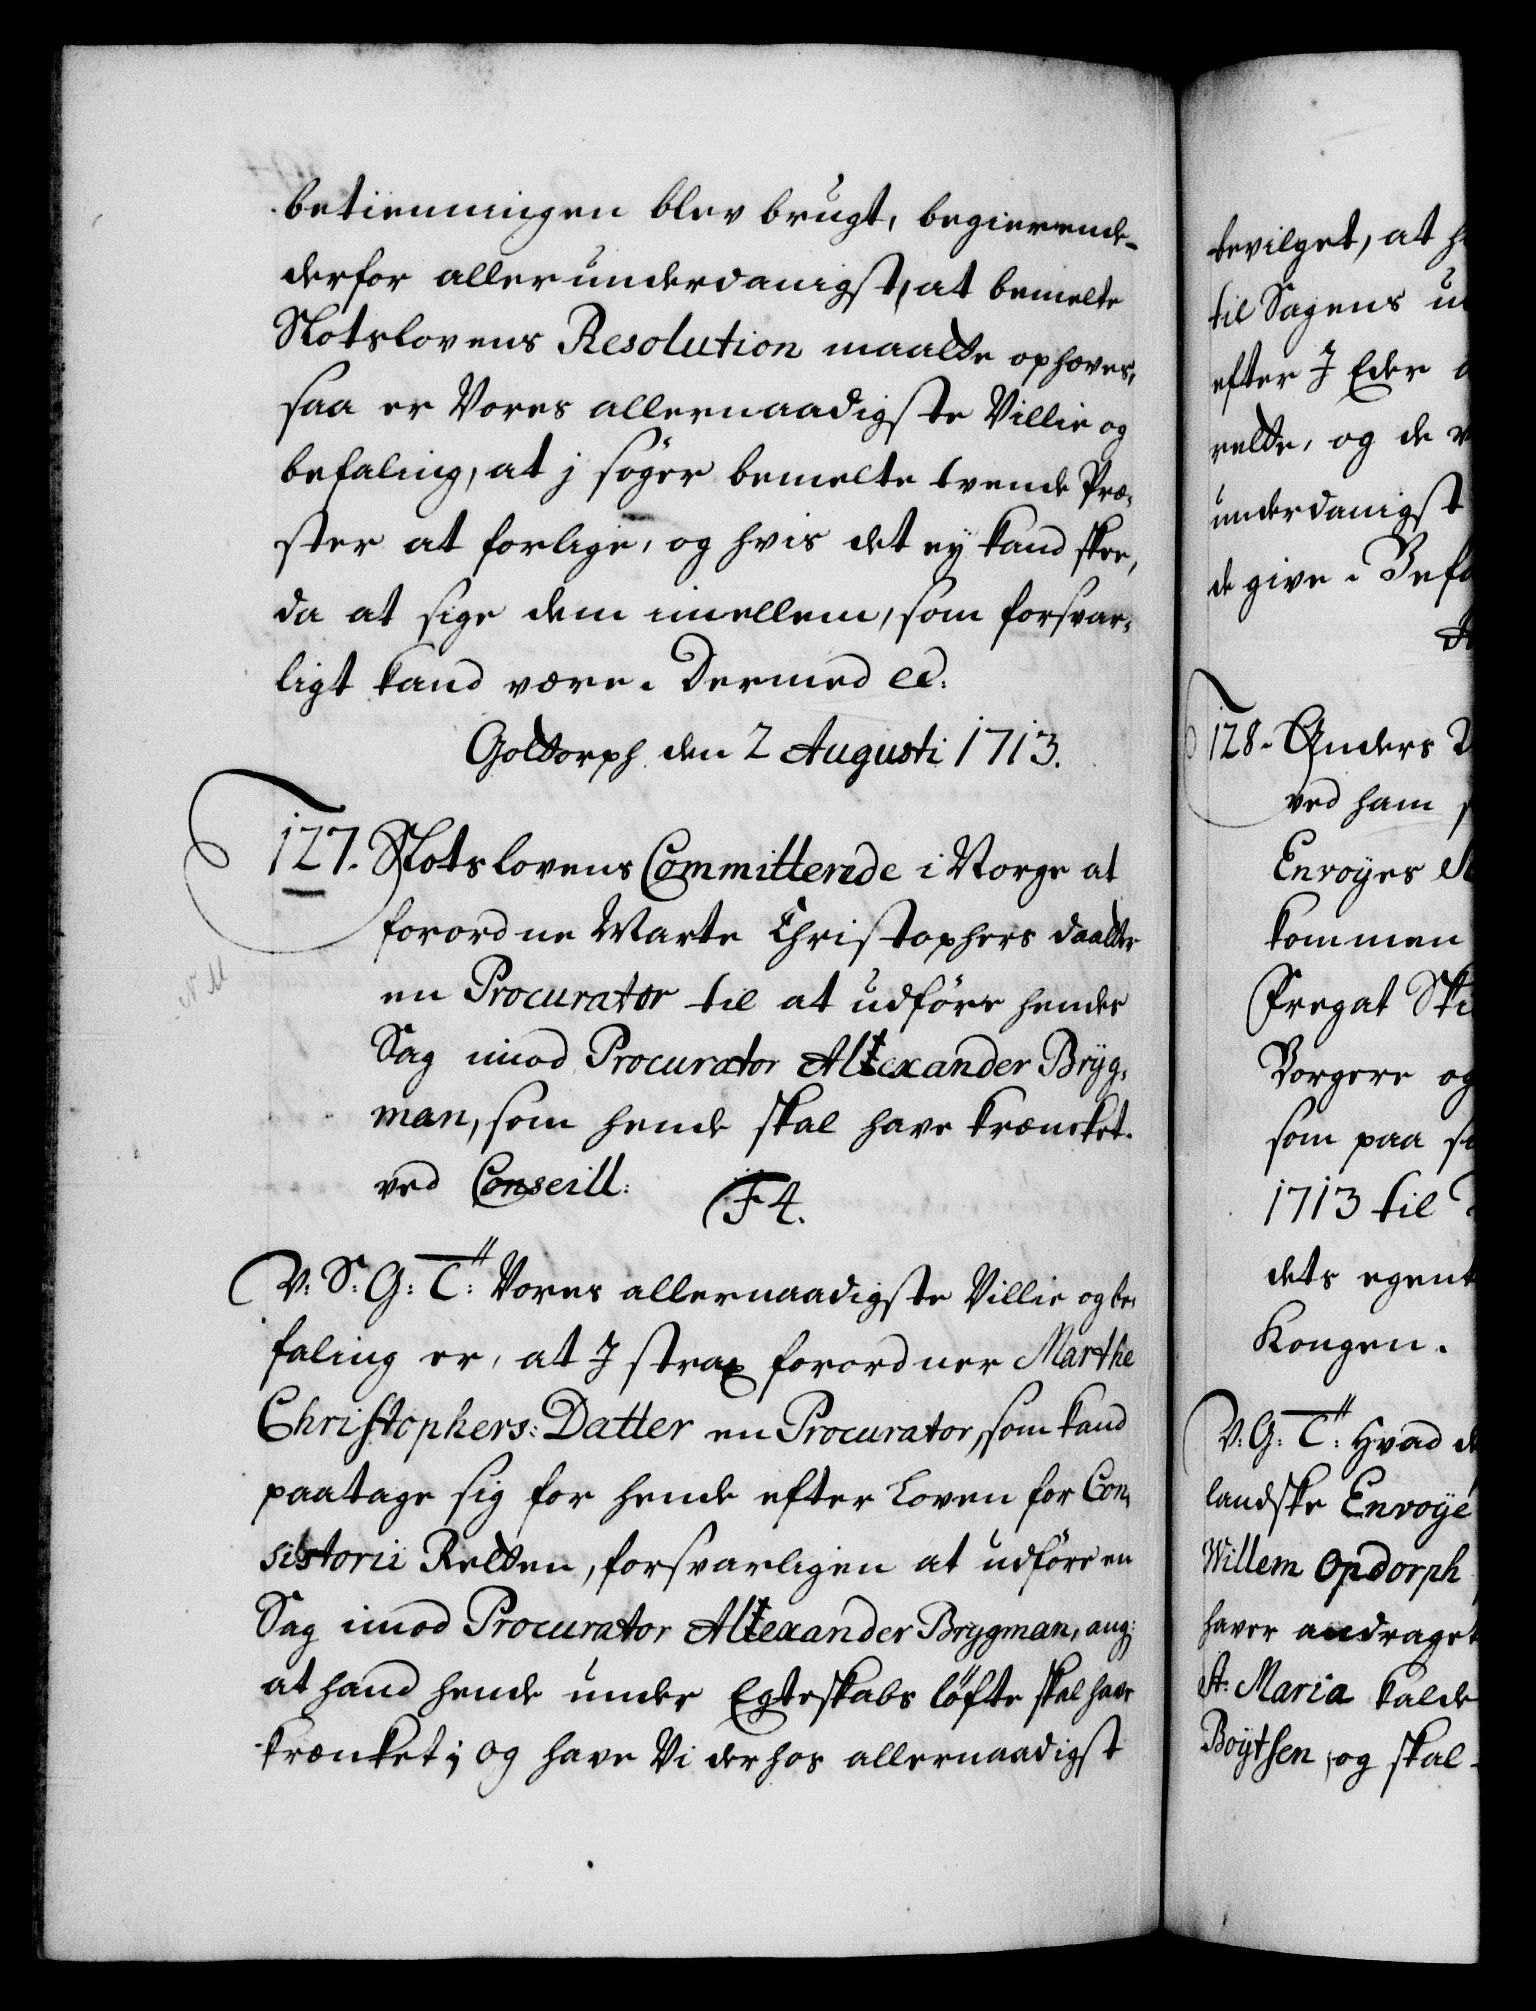 betienningen blev brugt, begierende
derfor allerunderdanigst, at bemelte
Slotslovens Resolution maatte ophæves,
saa er Vores allernaadigste Villie og
befaling, at j søger bemelte tvende Præ-
ster at forlige, og hvis det ey kand skee,
da at sige dem imellem, som forsvar-
ligt kand være. Dermed etc:
Gottorph den 2 Augusti 1713.
127. Slotslovens Committerede i Norge at
forordne Marte Christophers daatter
en Procurator til at udføre hendes
Sag imod Procurator Alexander Bryg-
man, som hende skal have kræncket.
ved Conseill:
F4.
V: S: G: T: Vores allernaadigste Villie og be-
faling er, at I strax forordner Marthe
Christophers: Datter en Procurator, som kand
paatage sig for hende efter Loven for Con-
sistorii Retten, forsvarligen at udføre en
Sag imod Procurator Alexander Brygman, ang:
at hand hende under Egteskabs løfte skal have
krænket; og have Vi derhos allernaadigst
bevilget, at
til Sagens
efter I Eder
rette, og de
underdanigst
de give. Befa
128. Anders
ved ham
Envoyes
kommen
Fregat
Borgere og
som paa
1713 til
dets egent
Kongen.
V: G: T: Hvad
landske Envoyé
Willem Opdorph
haver andraget
St: Maria kalde
Boytsen, og skal